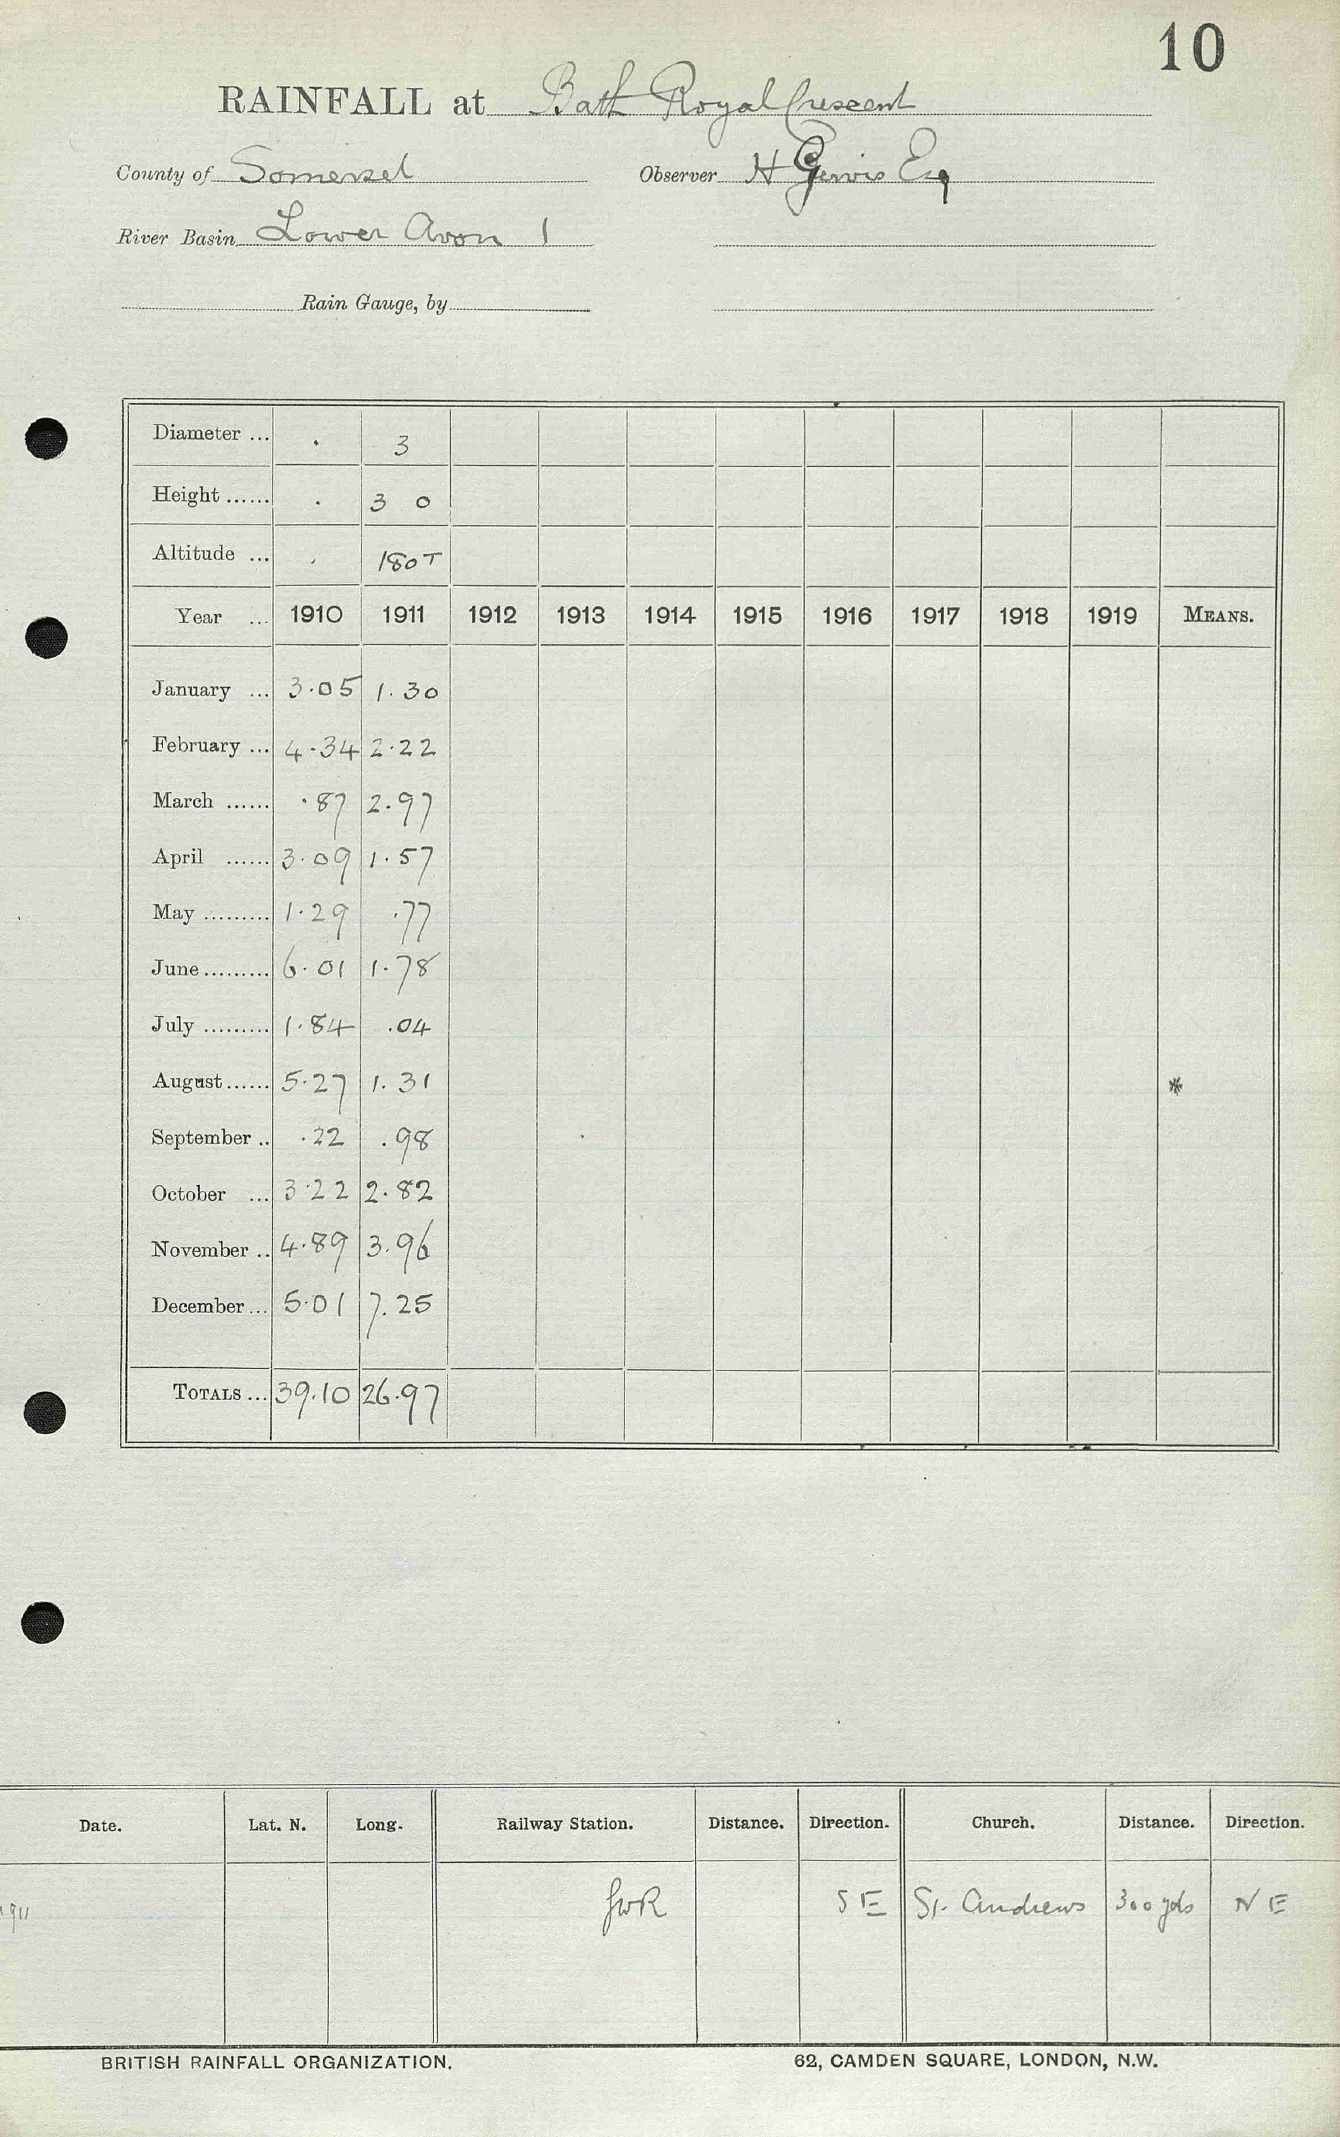 10
RAINFALL at Bath Royal Crescent
County of Somerset Observer H Gervis Esq
River Basin Lower Avon 1
Rain Gauge, by
Diameter ... . 3
Height ...... . 3 0
Altitude ... . 180 T
Year ... 1910 1911 1912 1913 1914 1915 1916 1917 1918 1919 MEANS.
January ... 3.05 1.30
February ... 4.34 2.22
March ...... .87 2.97
April ...... 3.09 1.57
May ......... 1.29 .77
June ......... 6.01 1.78
July ......... 1.84 .04
August ...... 5.27 1.31 *
September .. .22 .98
October ... 3.22 2.82
November .. 4.89 3.96
December ... 5.01 7.25
TOTALS ... 39.10 26.97
Date. Lat. N. Long. Railway Station. Distance. Direction. Church. Distance. Direction.
1911 GWR S E St. Andrews 300 yds N E
BRITISH RAINFALL ORGANIZATION. 62, CAMDEN SQUARE, LONDON, N.W.